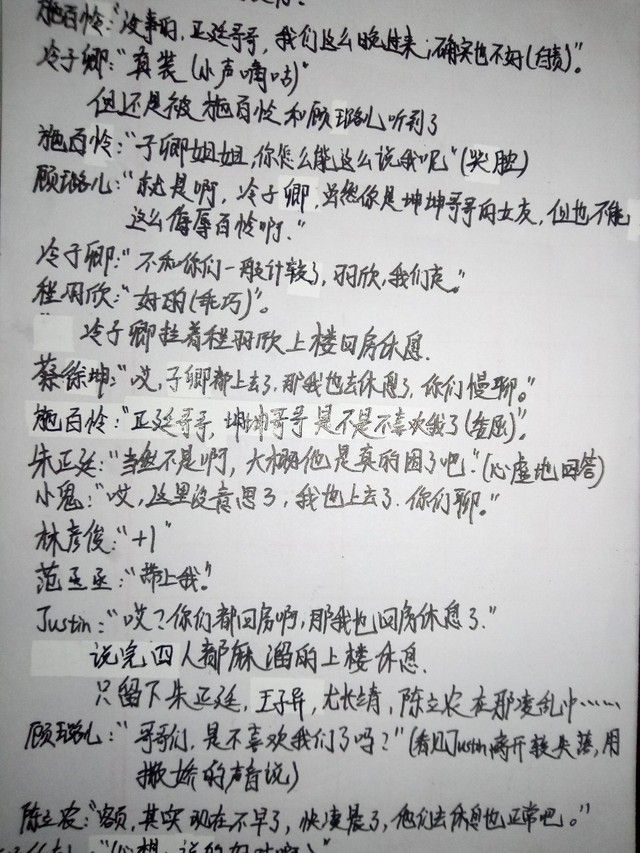 施百怜：“没事的，正廷哥哥，我们这么晚过来，确实也不好(自责)。”
冷子卿：“真装(小声嘀咕)”
但还是被施百怜和顾璐儿听到了
施百怜：“子卿姐姐，你怎么能这么说我呢”(哭腔)
顾璐儿：“就是啊，冷子卿，虽然你是坤坤哥哥的女友，但也不能
这么侮辱百怜啊。”
冷子卿：“不和你们一般计较了，羽欣，我们走。”
程羽欣：“好的(乖巧)”。
冷子卿拉着程羽欣上楼回房休息.
蔡徐坤：“哎，子卿都上去了，那我也去休息了，你们慢聊。”
施百怜：“正廷哥哥，坤坤哥哥是不是不喜欢我了(委屈)”。
朱正廷：“当然不是啊，大概他是真的困了吧.”(心虚地回答)
小鬼：“哎，这里没意思了，我也上去了.你们聊。”
林彦俊：“+1”
范丞丞：“带上我.”
Justin：“哎？你们都回房啊，那我也回房休息了.”
说完四人都麻溜的上楼休息.
只留下朱正廷，王子异，尤长靖，陈立农在那凌乱中……
顾璐儿：“哥哥们，是不喜欢我们了吗？”(看见Justin离开较失落，用
撒娇的声音说)
陈立农：“额，其实现在不早了，快凌晨了，他们去休息也正常吧。”